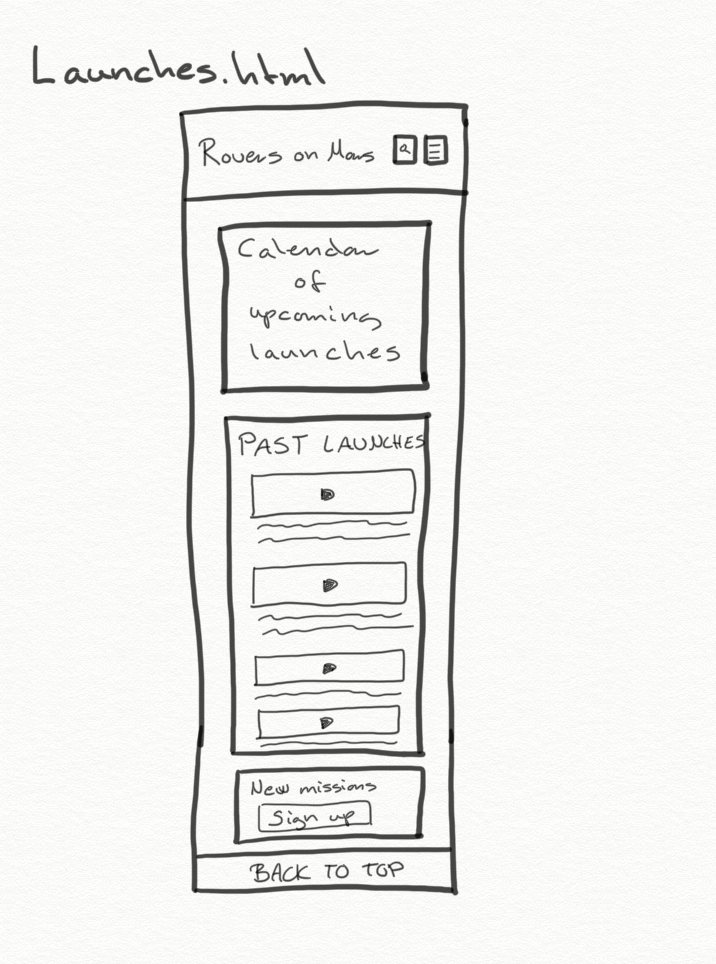 Launches.html
Rovers on Mars
Calendar
of
upcoming
launches
PAST LAUNCHES
New missions
Sign up
BACK TO TOP